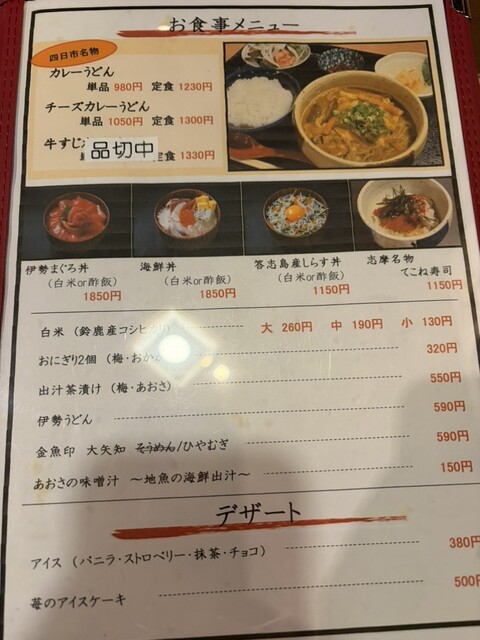 お食事メニュー
四日市名物
カレーうどん
単品 980円 定食 1230円
チーズカレーうどん
単品 1050円 定食 1300円
牛すじ
品切中
定食 1330円
伊勢まぐろ丼
(白米or酢飯)
1850円
海鮮丼
(白米or酢飯)
1850円
答志島産しらす丼
(白米or酢飯)
1150円
志摩名物
てこね寿司
1150円
白米 (鈴鹿産コシヒカリ) 大 260円 中 190円 小 130円
おにぎり2個 (梅・おかか) 320円
出汁茶漬け (梅・あおさ) 550円
伊勢うどん 590円
金魚印 大矢知 そうめん/ひやむぎ 590円
あおさの味噌汁 ～地魚の海鮮出汁～ 150円
デザート
アイス (バニラ・ストロベリー・抹茶・チョコ) 380円
苺のアイスケーキ 500円